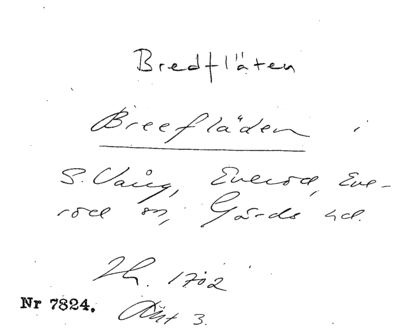 Bredfläten
Breefläden i
S. Vång, Everöd, Eve-
röd sn, Gärds hd.
Lh. 1702
Nr 7824. Akt 3.